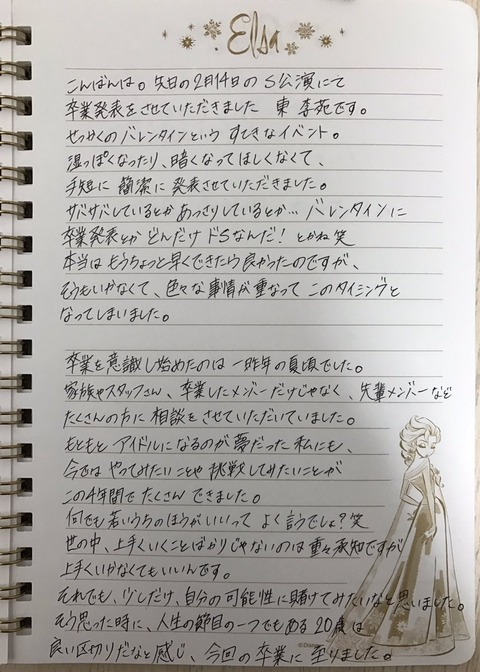 Elsa
こんばんは。先日の2月14日のS公演にて
卒業発表をさせていただきました 東 李苑です。
せっかくのバレンタインという すてきなイベント。
湿っぽくなったり、暗くなってほしくなくて、
手短に 簡潔に 発表させていただきました。
サバサバしているとか あっさりしているとか… バレンタインに
卒業発表とか どんだけ ドSなんだ! とかね 笑
本当は もうちょっと早くできたら良かったのですが、
そうもいかなくて、色々な事情が重なって このタイミングと
なってしまいました。
卒業を意識し始めたのは 一昨年の夏頃でした。
家族やスタッフさん、卒業したメンバーだけじゃなく、先輩メンバーなど
たくさんの方に 相談をさせていただいていました。
もともと アイドルになるのが 夢だった 私にも、
今では やってみたいことや 挑戦してみたいことが
この4年間で たくさん できました。
何でも若いうちのほうがいいって よく言うでしょ?笑
世の中、上手くいくことばかりじゃないのは 重々承知ですが
上手くいかなくてもいいんです。
それでも、少しだけ、自分の可能性に賭けてみたいなと思いました。
そう思った時に、人生の節目の一つでもある 20歳は
良い区切りだなと感じ、今回の卒業に 至りました。
©Disney